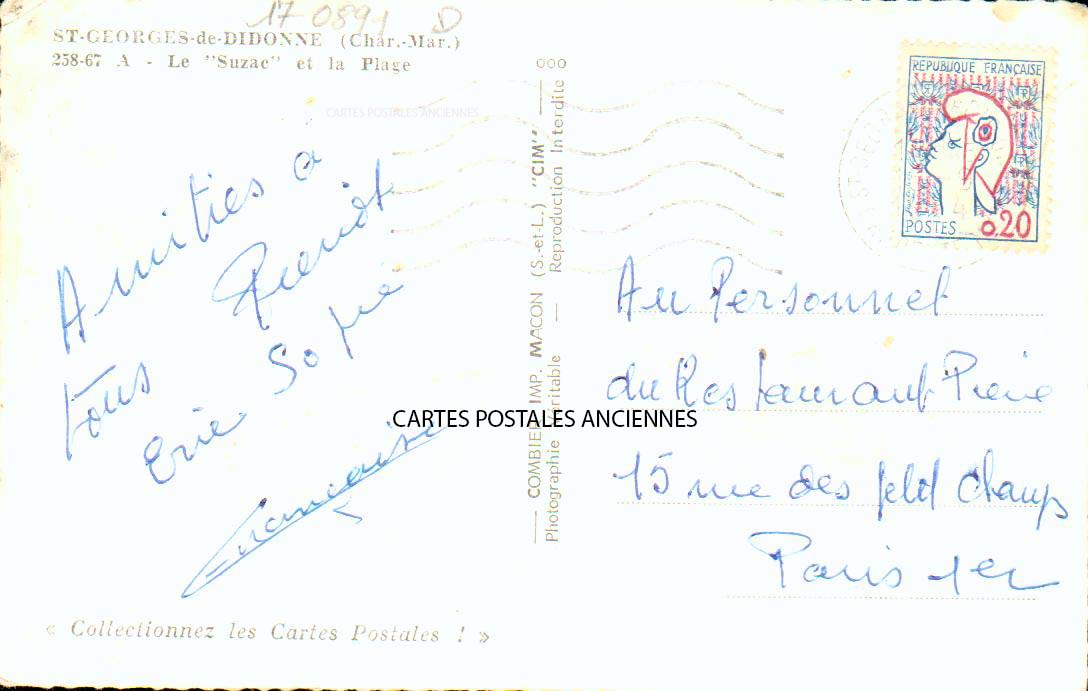 17 0891 D
ST-GEORGES-de-DIDONNE (Char.-Mar.)
258-67 A - Le "Suzac" et la Plage
CARTES POSTALES ANCIENNES
Amitiés a
tous
Eric Sophie
Françoise
« Collectionnez les Cartes Postales ! »
COMBIER IMP. MACON (S.-et-L.) "CIM"
Photographie Véritable — Reproduction Interdite
CARTES POSTALES ANCIENNES
REPUBLIQUE FRANÇAISE
POSTES 0,20
Au Personnel
du Restaurant Pierre
15 rue des petit Champs
Paris 1er